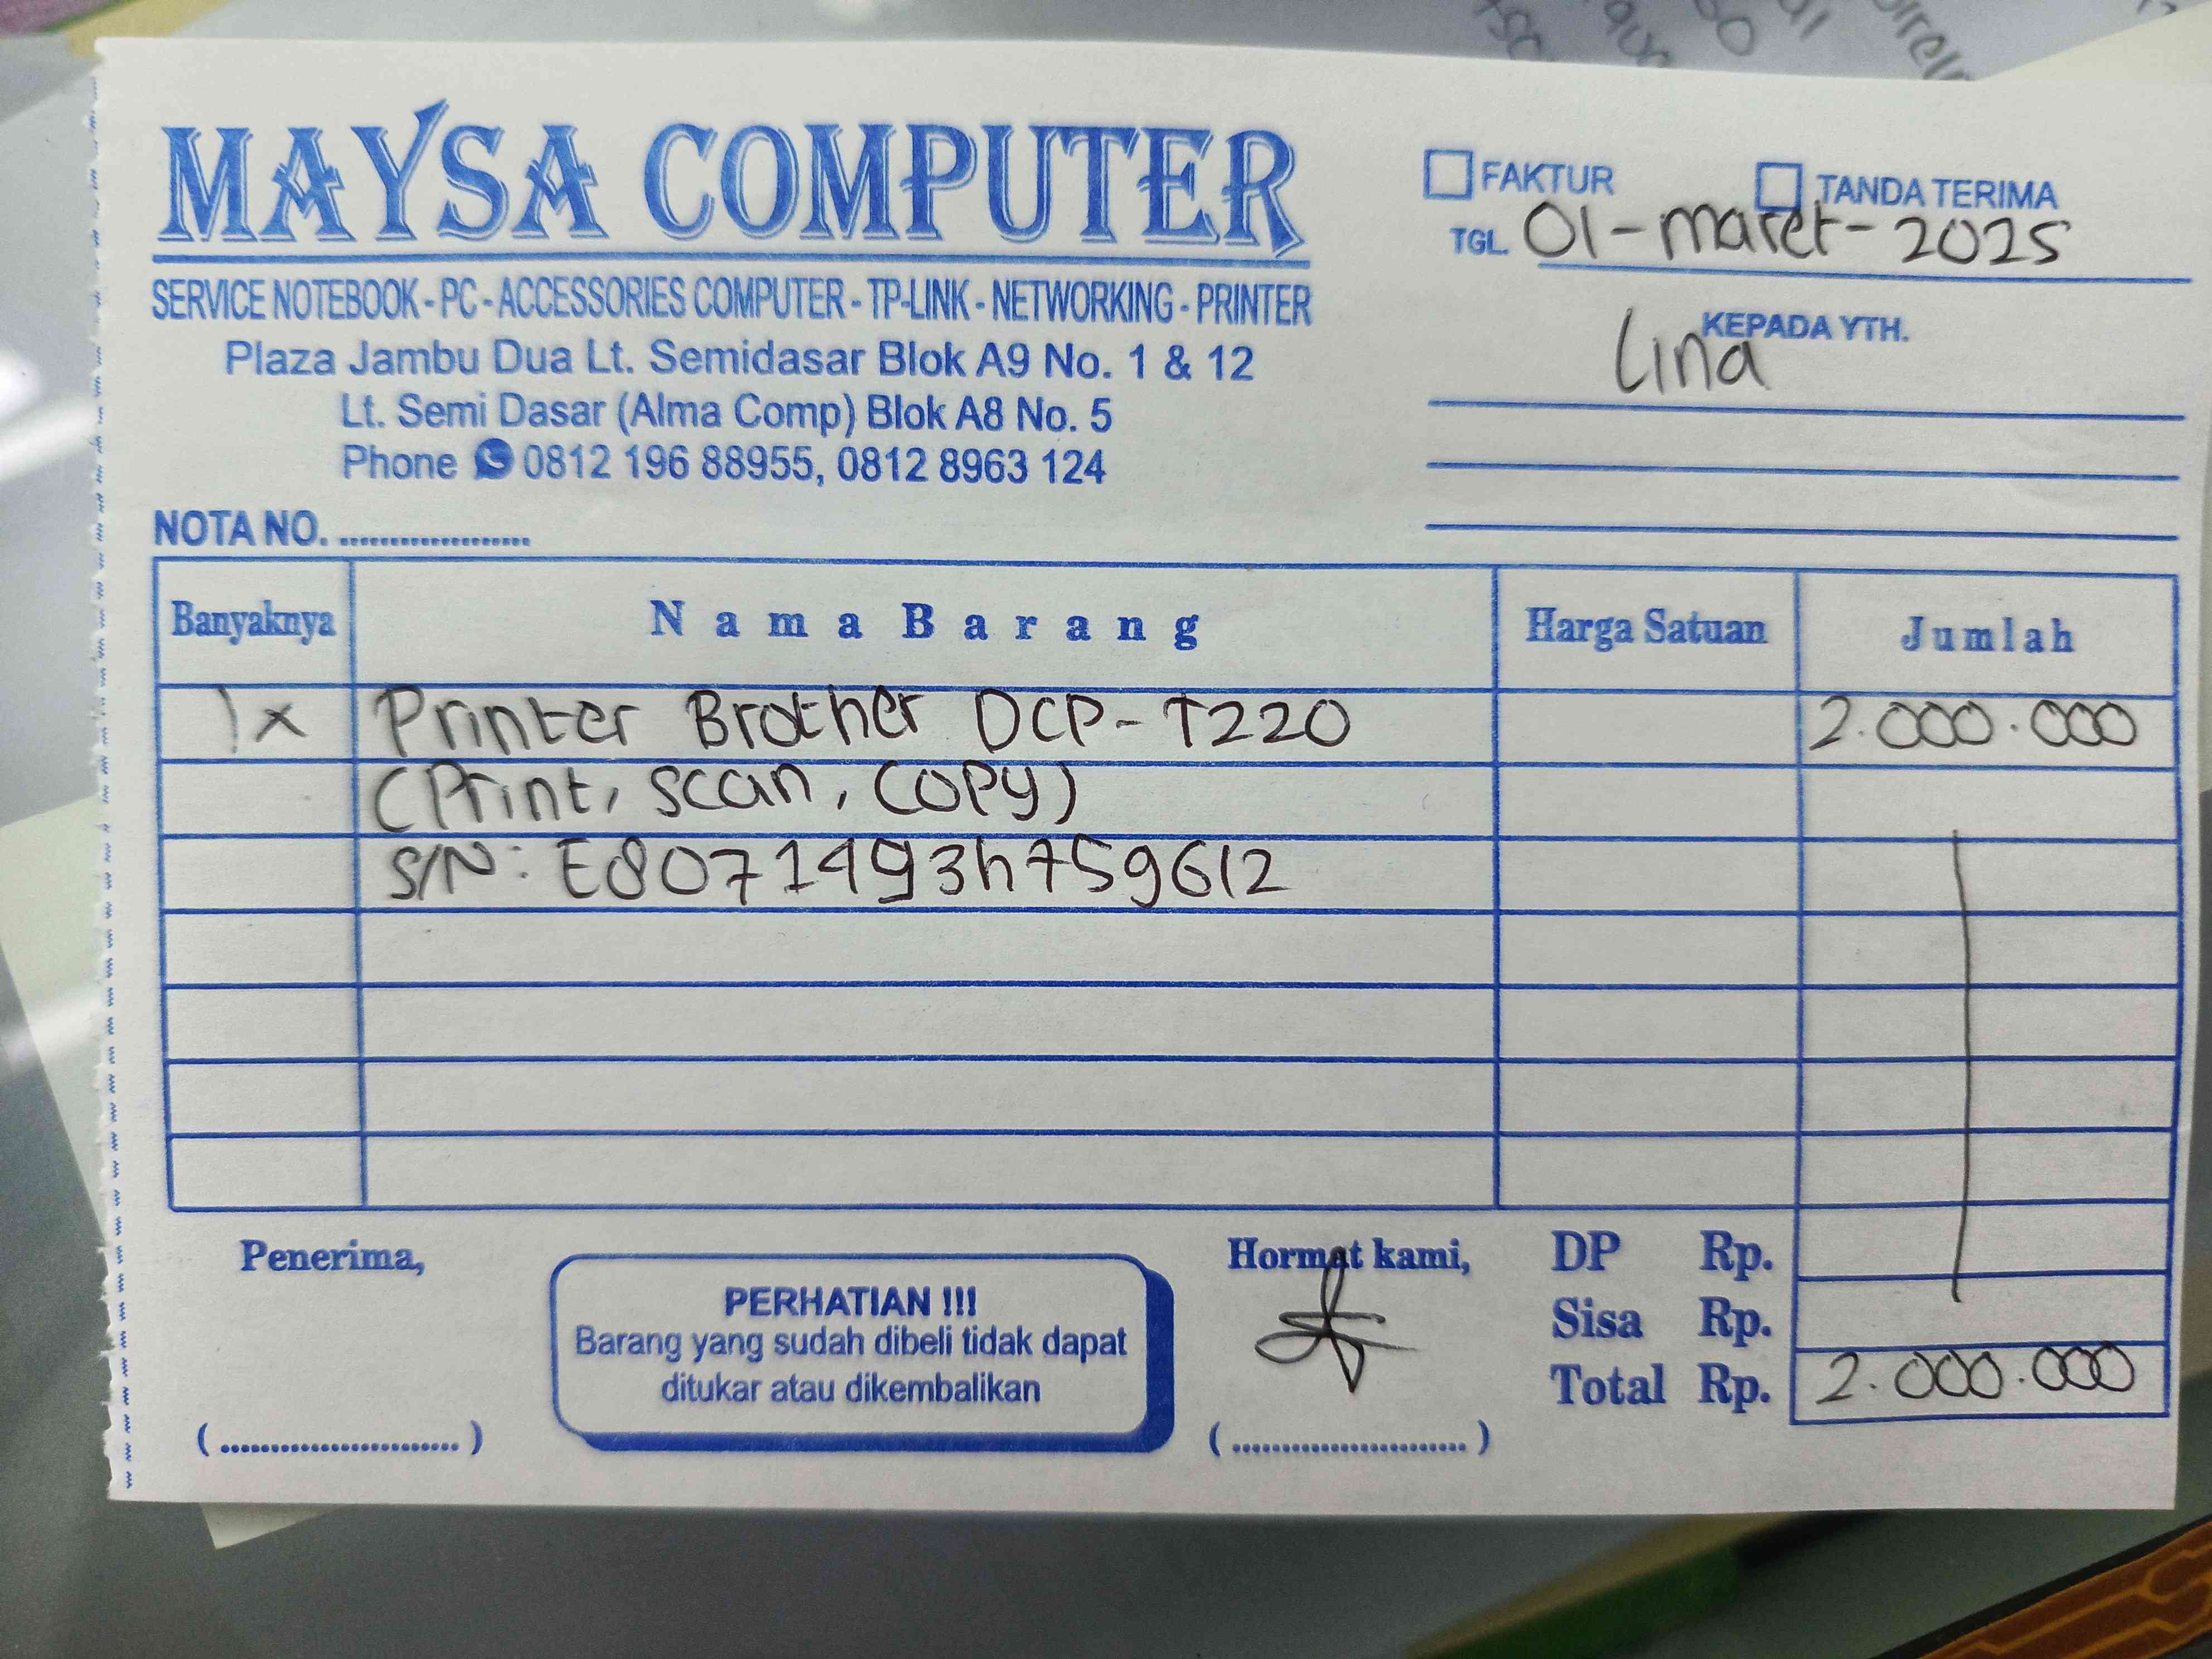 MAYSA COMPUTER
SERVICE NOTEBOOK - PC - ACCESSORIES COMPUTER - TP-LINK - NETWORKING - PRINTER
Plaza Jambu Dua Lt. Semidasar Blok A9 No. 1 & 12
Lt. Semi Dasar (Alma Comp) Blok A8 No. 5
Phone 0812 196 88955, 0812 8963 124
FAKTUR TANDA TERIMA
TGL. 01-maret-2025
KEPADA YTH.
Lina
NOTA NO. ...................
Banyaknya Nama Barang Harga Satuan Jumlah
1x Printer Brother DCP-T220 2.000.000
(Print, scan, copy)
S/N: E8071493h759612
Penerima,
(........................)
PERHATIAN !!!
Barang yang sudah dibeli tidak dapat
ditukar atau dikembalikan
Hormat kami,
(........................)
DP Rp.
Sisa Rp.
Total Rp. 2.000.000